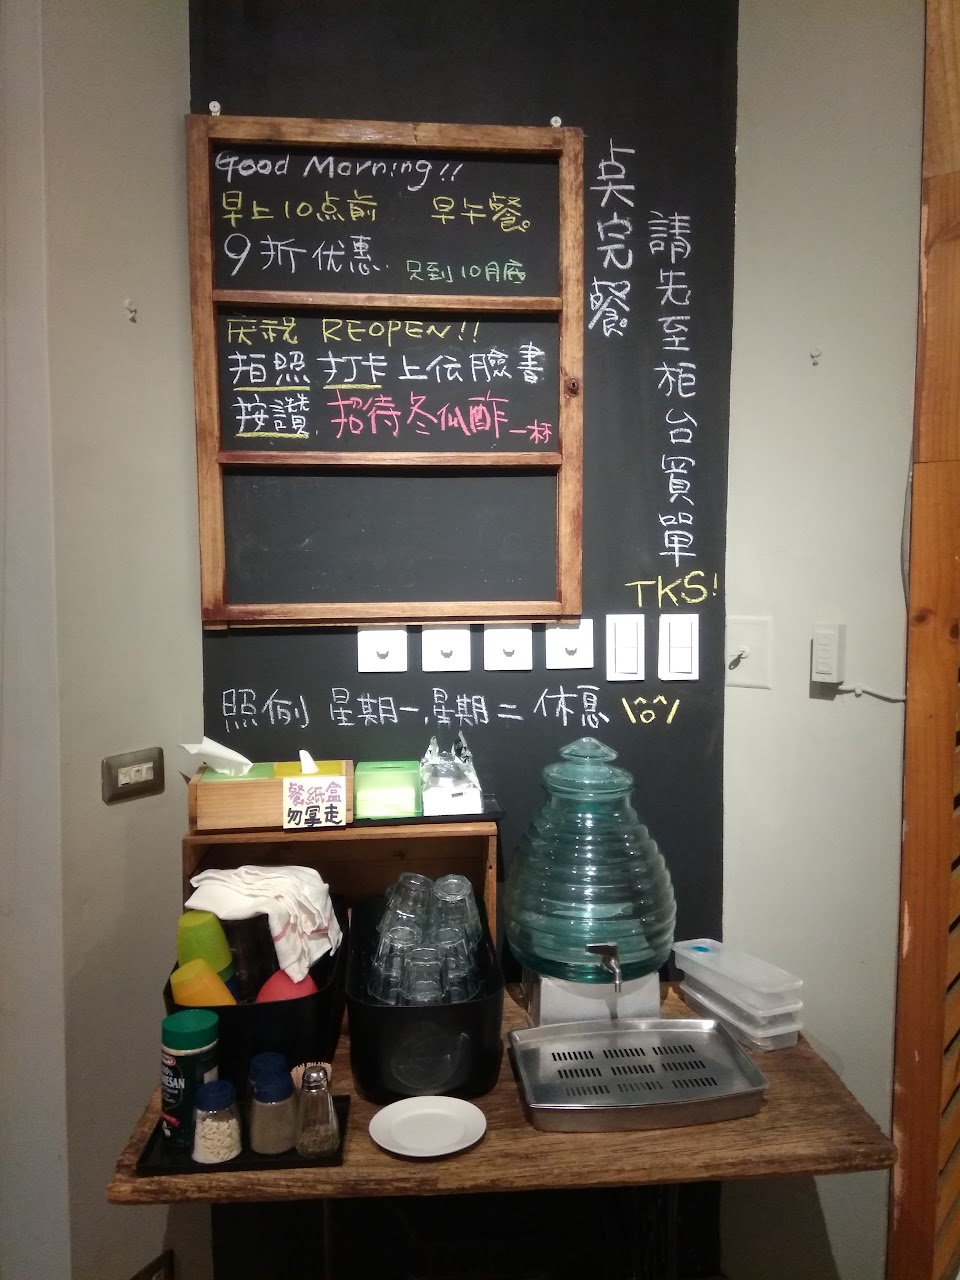 Good Morning!!
早上10点前 早午餐。
9折优惠. 只到10月底
庆祝 REOPEN!!
拍照 打卡上伝臉書
按讚. 招待冬瓜酢一杯
点完餐
請先至柜台買單
TKS!
照例 星期一.星期二 休息 \^o^/
餐紙盒
勿拿走
100%
PARMESAN